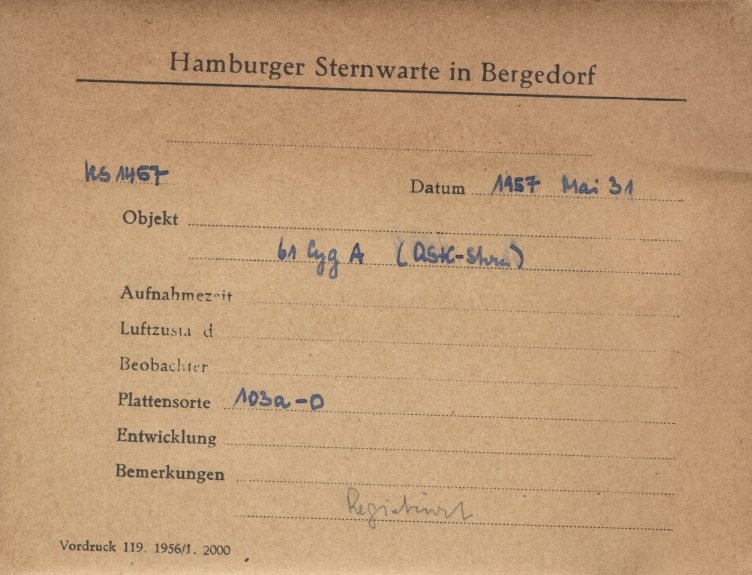 Hamburger Sternwarte in Bergedorf
KS 1467 Datum 1957 Mai 31
Objekt
61 Cyg A (QSK-
Aufnahmezeit
Luftzusta d
Beobachter
Plattensorte 103a-O
Entwicklung
Bemerkungen
Registriert
Vordruck 119. 1956/1. 2000